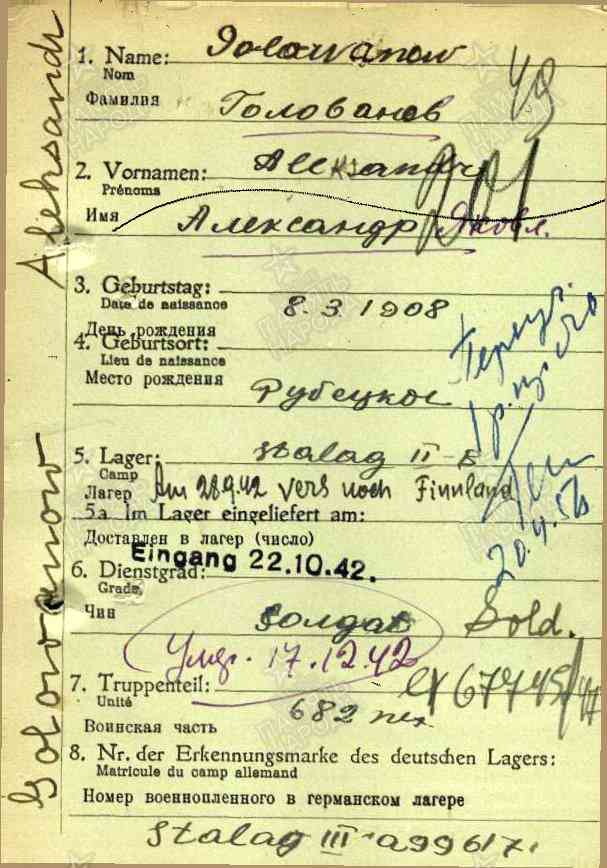 1. Name: Golowanow
Nom
Фамилия Голованов
49
2. Vornamen: Alexsandr
Prénoms
Имя Александр Яковл.
3. Geburtstag:
Date de naissance 8.3.1908
День рождения
4. Geburtsort:
Lieu de naissance
Место рождения Рубецкое
5. Lager: Stalag II-B
Camp
Лагерь Am 28.9.42 vers nach Finnland
5a. Im Lager eingeliefert am:
Доставлен в лагерь (число)
Eingang 22.10.42.
20.4.56
6. Dienstgrad:
Grade
Чин солдат Sold.
Умер. 17.12.42
7. Truppenteil:
Unité 682
Воинская часть
8. Nr. der Erkennungsmarke des deutschen Lagers:
Matricule du camp allemand
Номер военнопленного в германском лагере
Stalag III-a 99617.
Golowanow Aleksandr